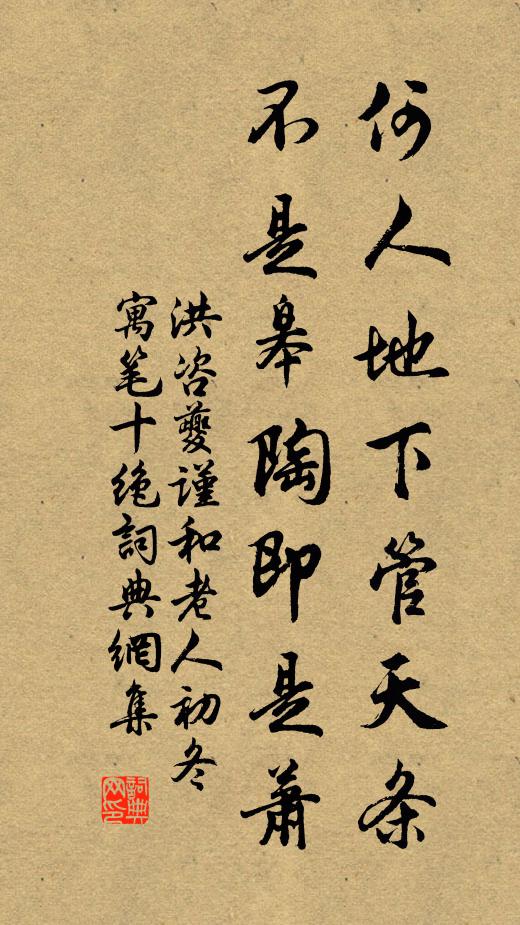 何人地下管天条
不是皋陶即是萧
洪咨夔谨和老人初冬
寓笔十绝詞典網集
詞典网印